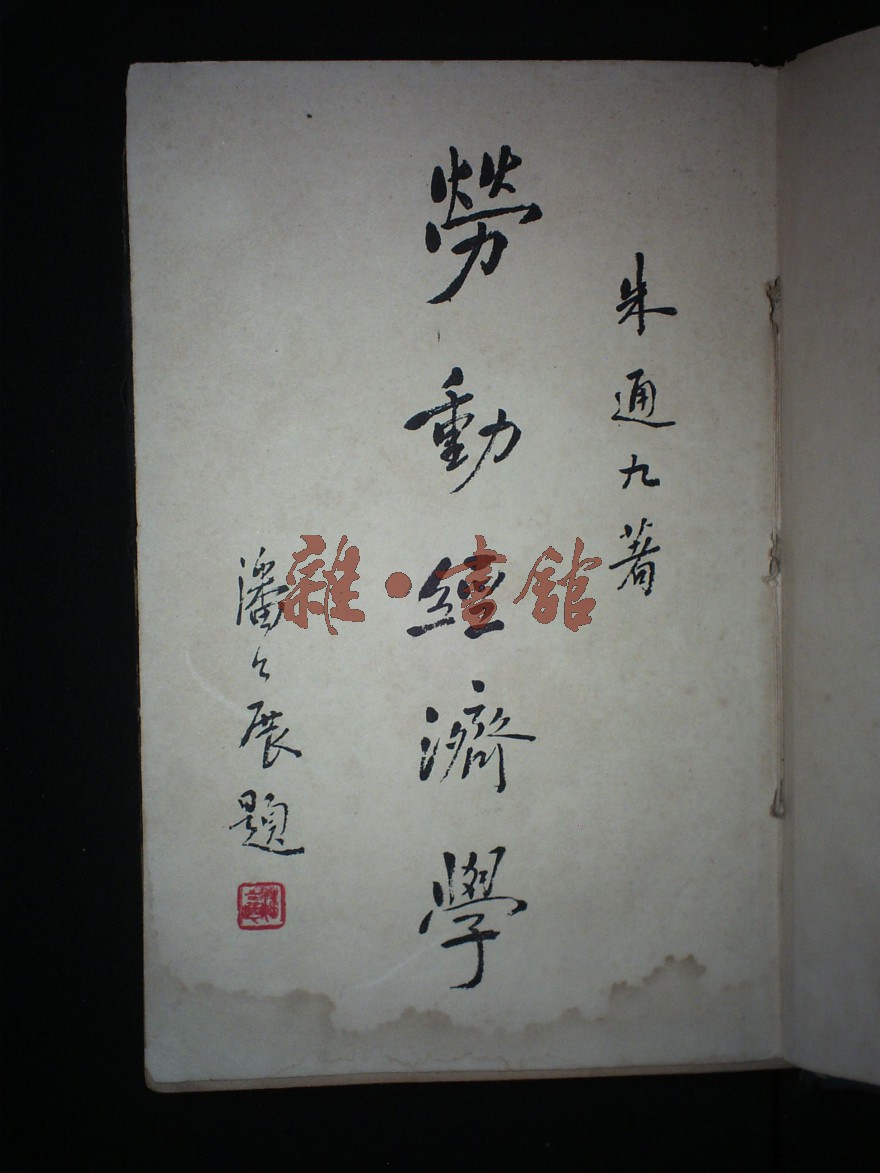 朱通九著
勞動經濟學
潘公展題
雜·書館